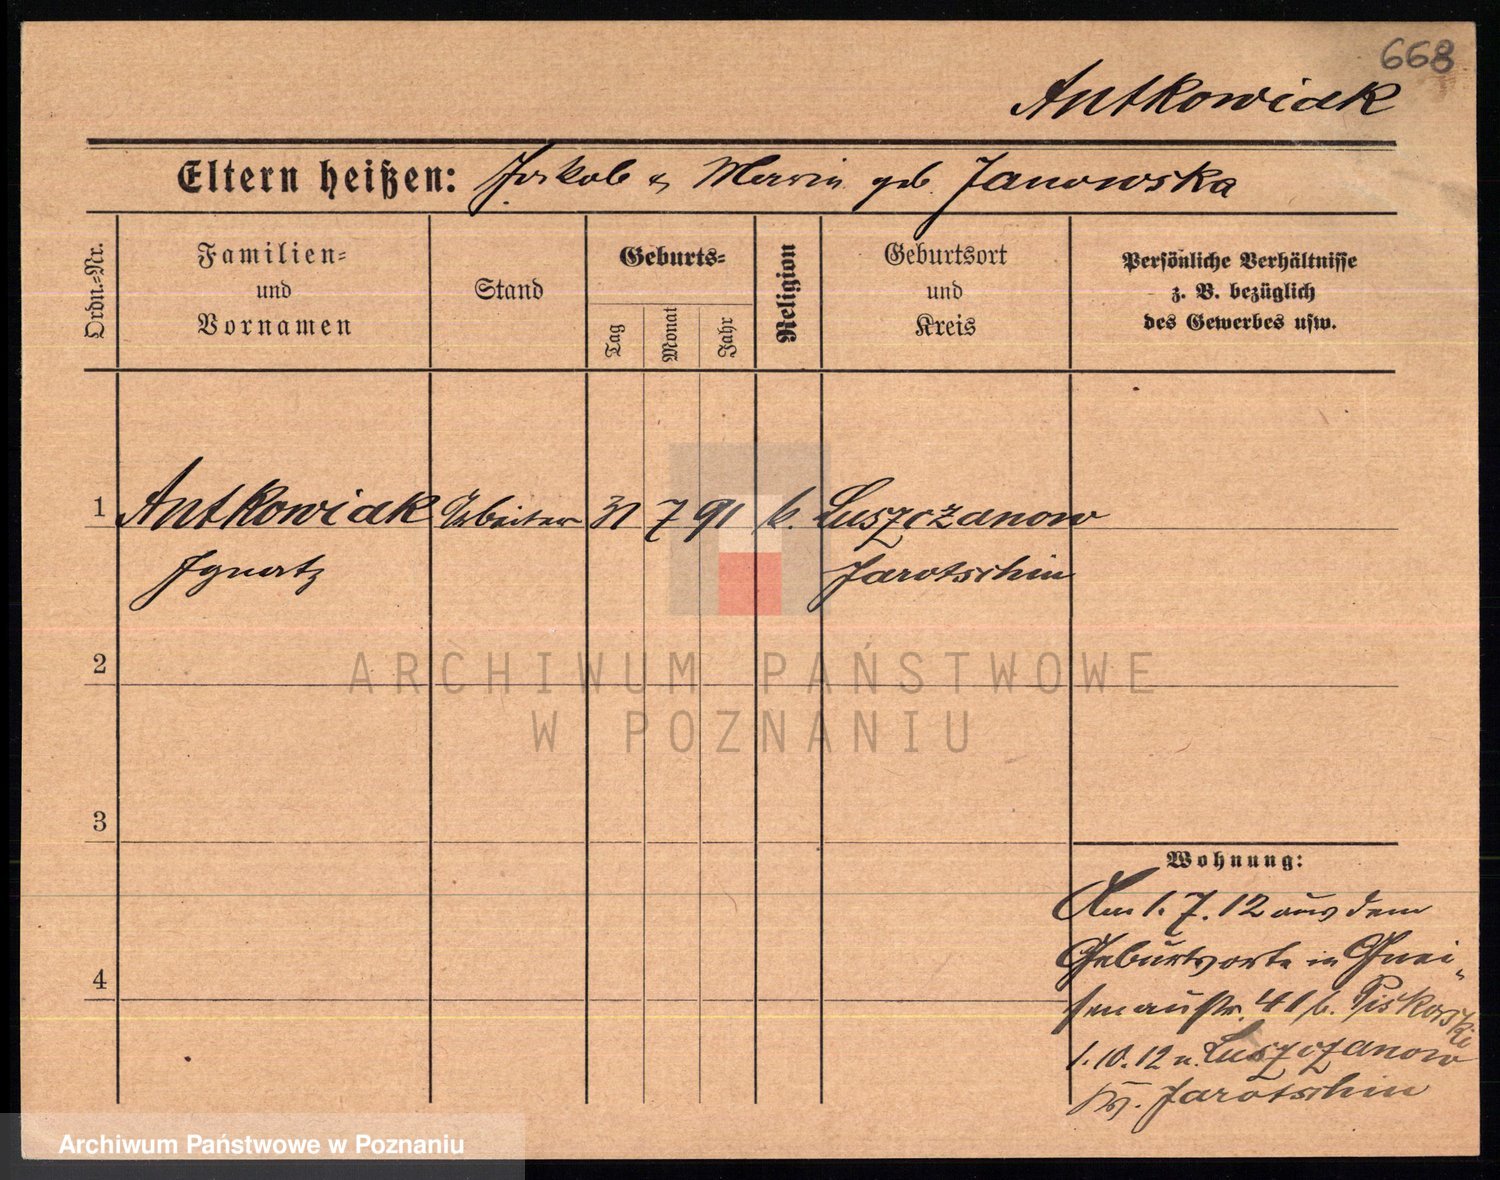 668
Antkowiak
Eltern heißen: Jakob u Maria geb. Janowska
Ordn.-Nr.
Familien-
und
Vornamen
Stand
Geburts-
Tag
Monat
Jahr
Religion
Geburtsort
und
Kreis
Persönliche Verhältnisse
z. B. bezüglich
des Gewerbes usw.
1 Antkowiak Arbeiter 31 7 91 k. Luszczanow
Ignatz Jarotschin
2
ARCHIWUM PAŃSTWOWE
W POZNANIU
3
Wohnung:
Am 1. 7. 12 aus dem
Geburtsorte in Gnei-
4
senaustr. 41 b. Piskorski
1.10.12 n. Luszczanow
Kr. Jarotschin
Archiwum Państwowe w Poznaniu